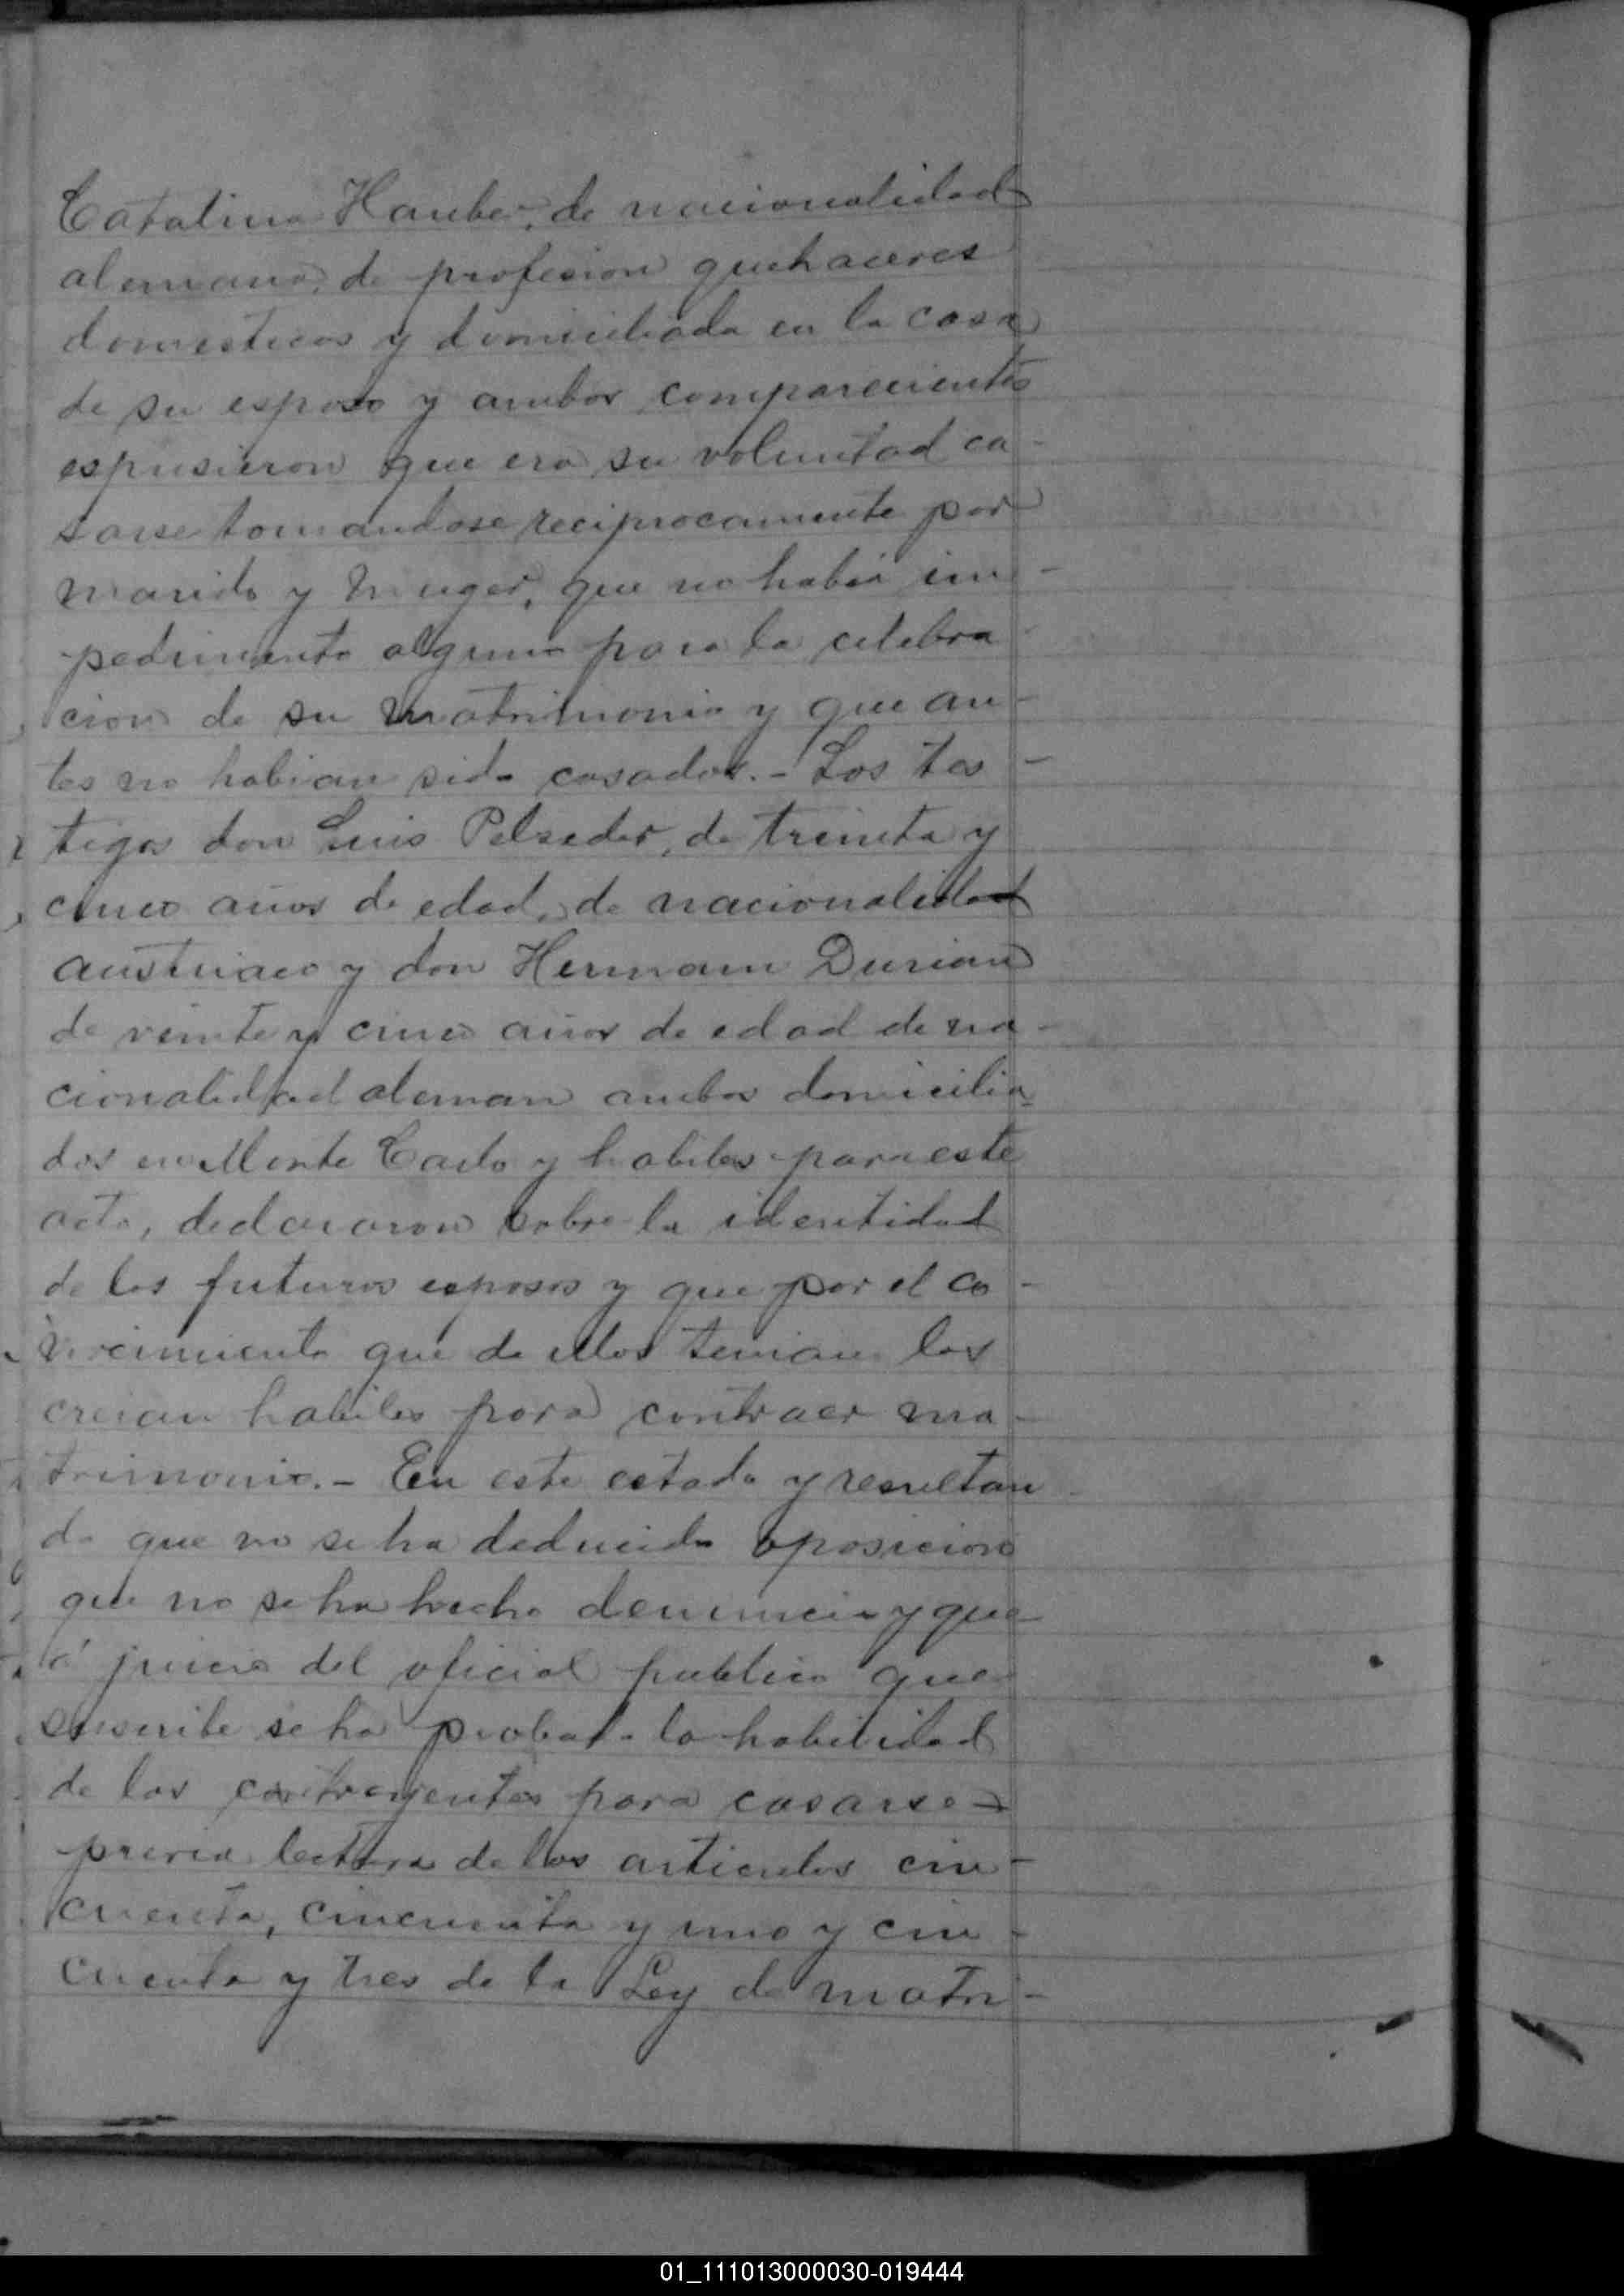 Catalina Hauber, de nacionalidad
alemana, de profesion quehaceres
domesticos y domiciliada en la casa
de su esposo y ambos comparecientes
espusieron que era su voluntad ca-
sarse tomandose reciprocamente por
marido y muger, que no habia im-
pedimento alguno para la celebra
cion de su matrimonio y que an-
tes no habian sido casados.- Los tes-
tigos don Luis Pelzeder, de treinta y
cinco años de edad, de nacionalidad
austriaco y don Hermann Durian
de veinte y cinco años de edad de na-
cionalidad aleman ambos domicilia
dos en Monte Carlo y habiles para este
acto, declararon sobre la identidad
de los futuros esposos y que por el co-
nocimiento que de ellos tenian los
creian habiles para contraer ma-
trimonio.- En este estado y resultan
do que no se ha deducido oposicion
que no se ha hecho denuncia y que
á juicio del oficial publico que
suscribe se ha probado la habilidad
de los contrayentes para casarse
previa lectura de los articulos cin-
cuenta, cincuenta y uno y cin-
cuenta y tres de la Ley de matri-
01_111013000030-019444